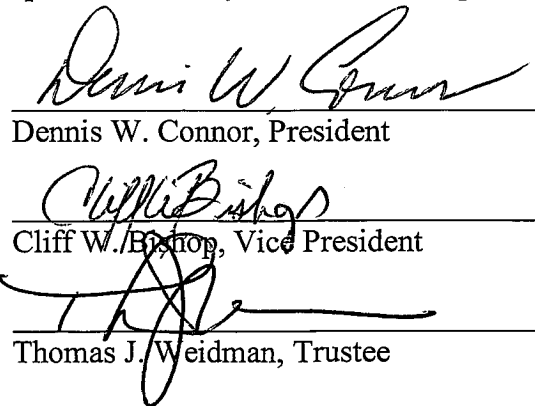 Dennis W. Connor
Dennis W. Connor, President
Cliff W. Bishop
Cliff W. Bishop, Vice President
Thomas J. Weidman, Trustee